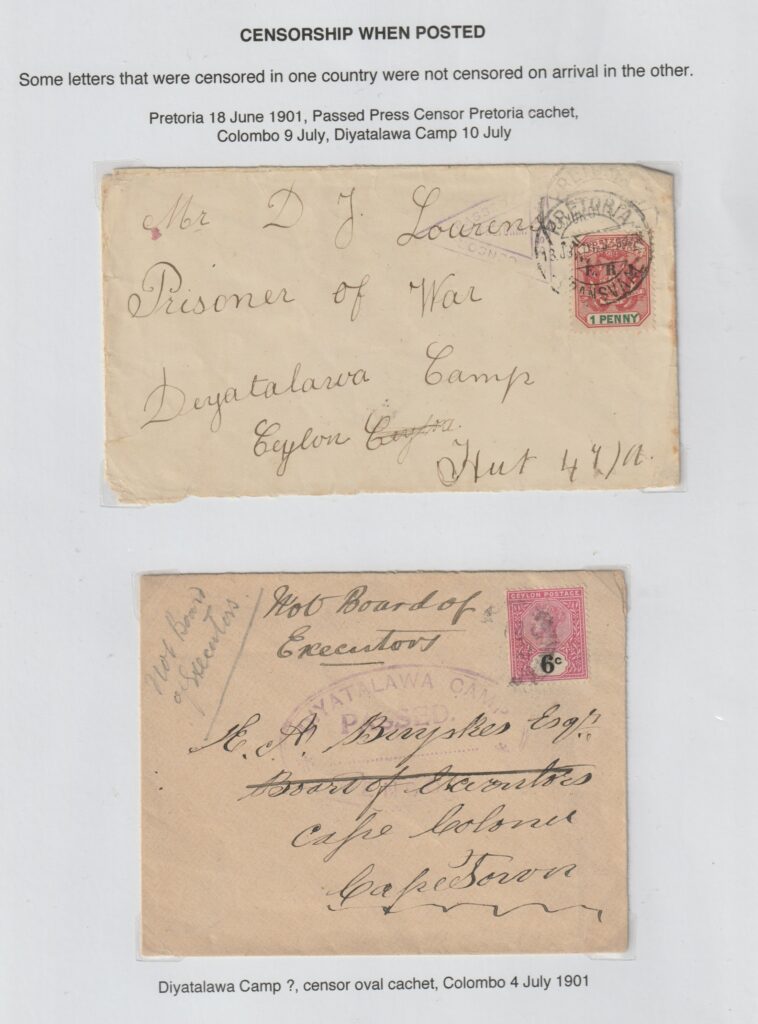 CENSORSHIP WHEN POSTED
Some letters that were censored in one country were not censored on arrival in the other.
Pretoria 18 June 1901, Passed Press Censor Pretoria cachet,
Colombo 9 July, Diyatalawa Camp 10 July
Mr D J. Lourens
PRETORIA
TRANSVAAL
E. R. I.
1 PENNY
Prisoner of War
Diyatalawa Camp
Ceylon
Hut 47/a.
Not Board of Executors
Not Board of
Executors
CEYLON POSTAGE
6c
DIYATALAWA CAMP
PASSED.
Esqr
Board of Executors
Cape Colonie
Cape Town
Diyatalawa Camp ?, censor oval cachet, Colombo 4 July 1901